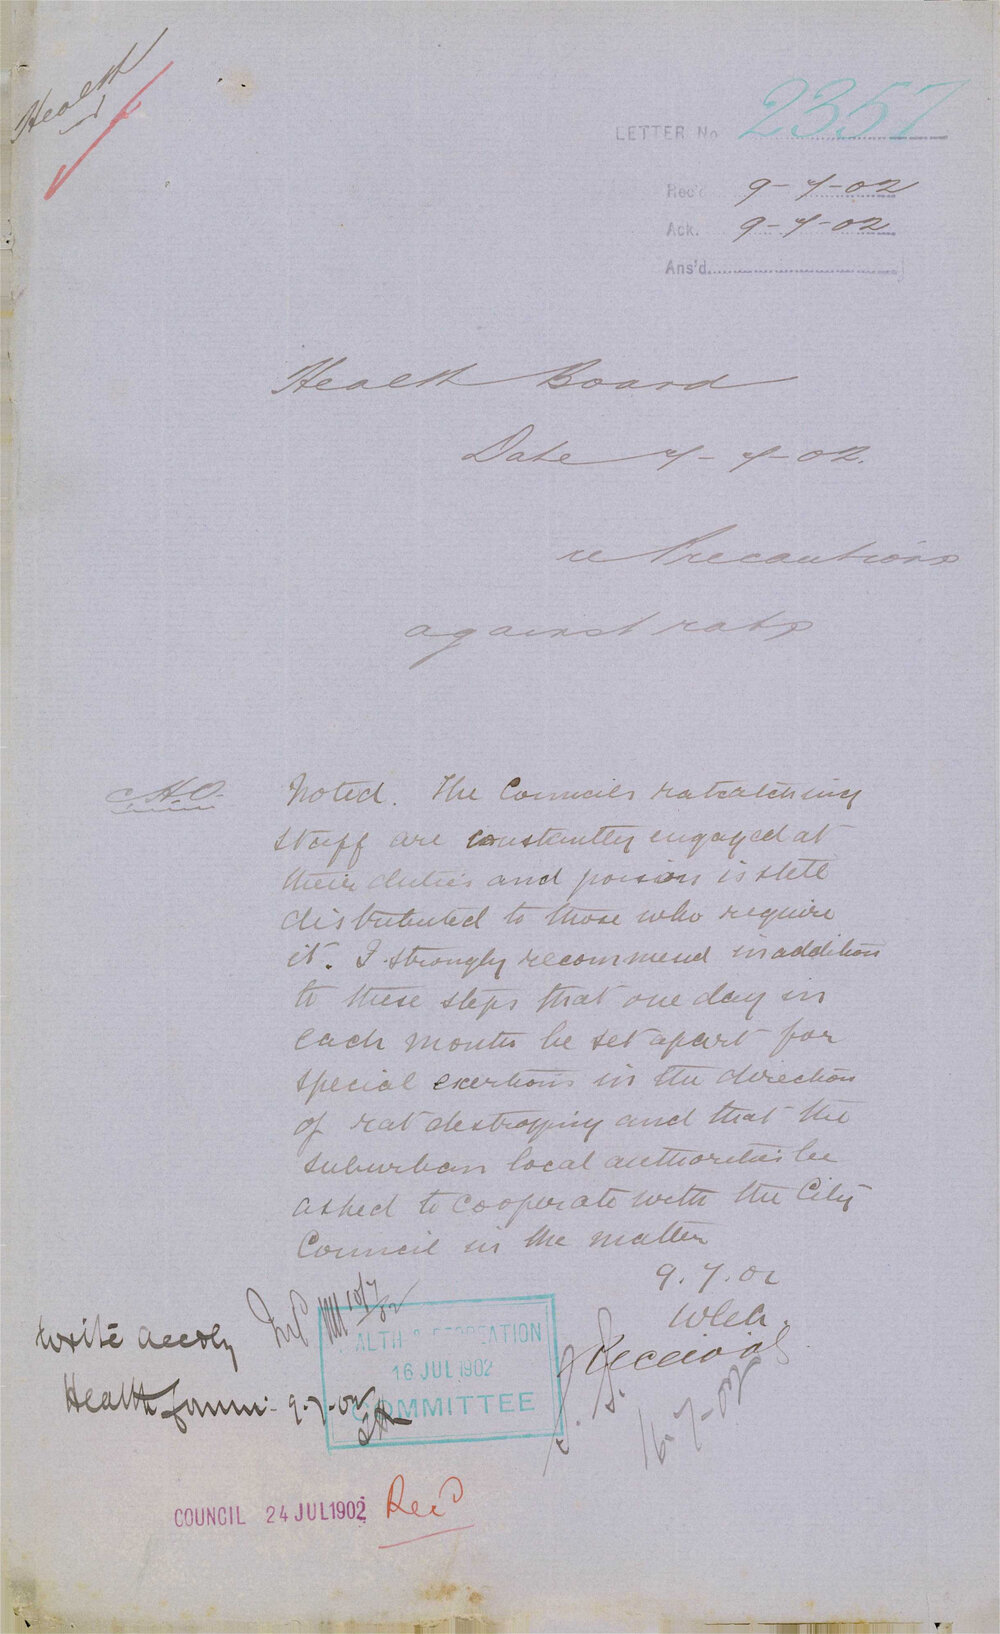 Health
LETTER No 2357
Rec'd 9-7-02
Ack. 9-7-02
Ans'd
Health Board
Date 7-7-02.
re Precautions
against rats
H.O.
Noted. The Councils ratcatching
staff are constantly engaged at
their duties and poison is still
distributed to those who require
it. I strongly recommend in addition
to these steps that one day in
each month be set apart for
special exertions in the direction
of rat destroying and that the
suburban local authorities be
asked to cooperate with the City
Council in the matter
9.7.02
Write accdly
10/7/02
HEALTH & RECREATION
16 JUL 1902
COMMITTEE
Received
16-7-02
Health Comm: 9-7-02
COUNCIL 24 JUL 1902 Recd